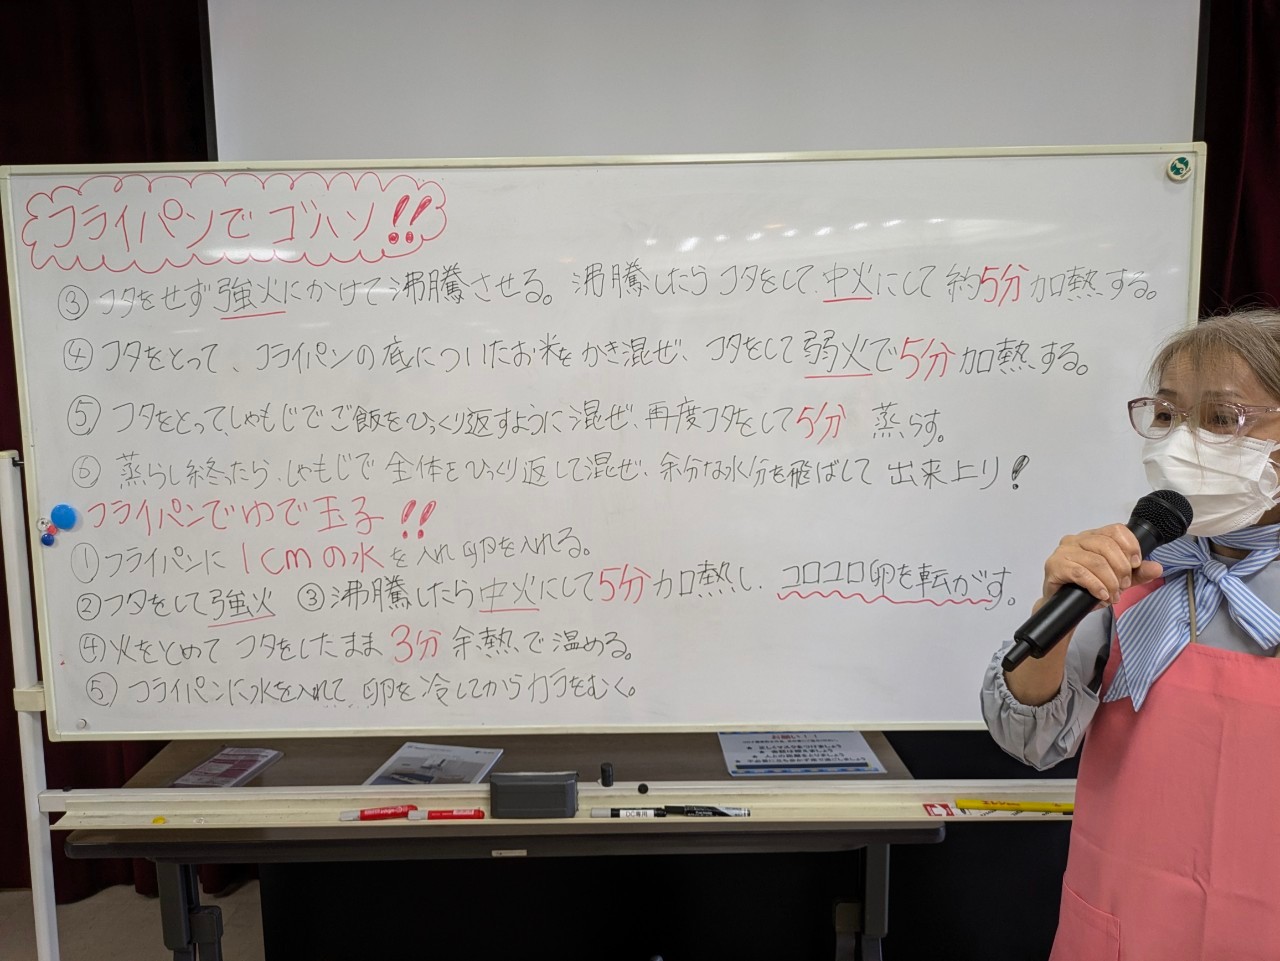 フライパンでゴハン!!
③フタをせず強火にかけて沸騰させる。沸騰したらフタをして中火にして約5分加熱する。
④フタをとって、フライパンの底についたお米をかき混ぜ、フタをして弱火で5分加熱する。
⑤フタをとって、しゃもじでご飯をひっくり返すように混ぜ、再度フタをして5分 蒸らす。
⑥蒸らし終ったら、しゃもじで全体をひっくり返して混ぜ、余分な水分を飛ばして出来上り!
フライパンでゆで玉子!!
①フライパンに1cmの水を入れ卵を入れる。
②フタをして強火 ③沸騰したら中火にして5分加熱し、コロコロ卵を転がす。
④火をとめてフタをしたまま3分余熱で温める。
⑤フライパンに水を入れて卵を冷してからカラをむく。
お願い!!